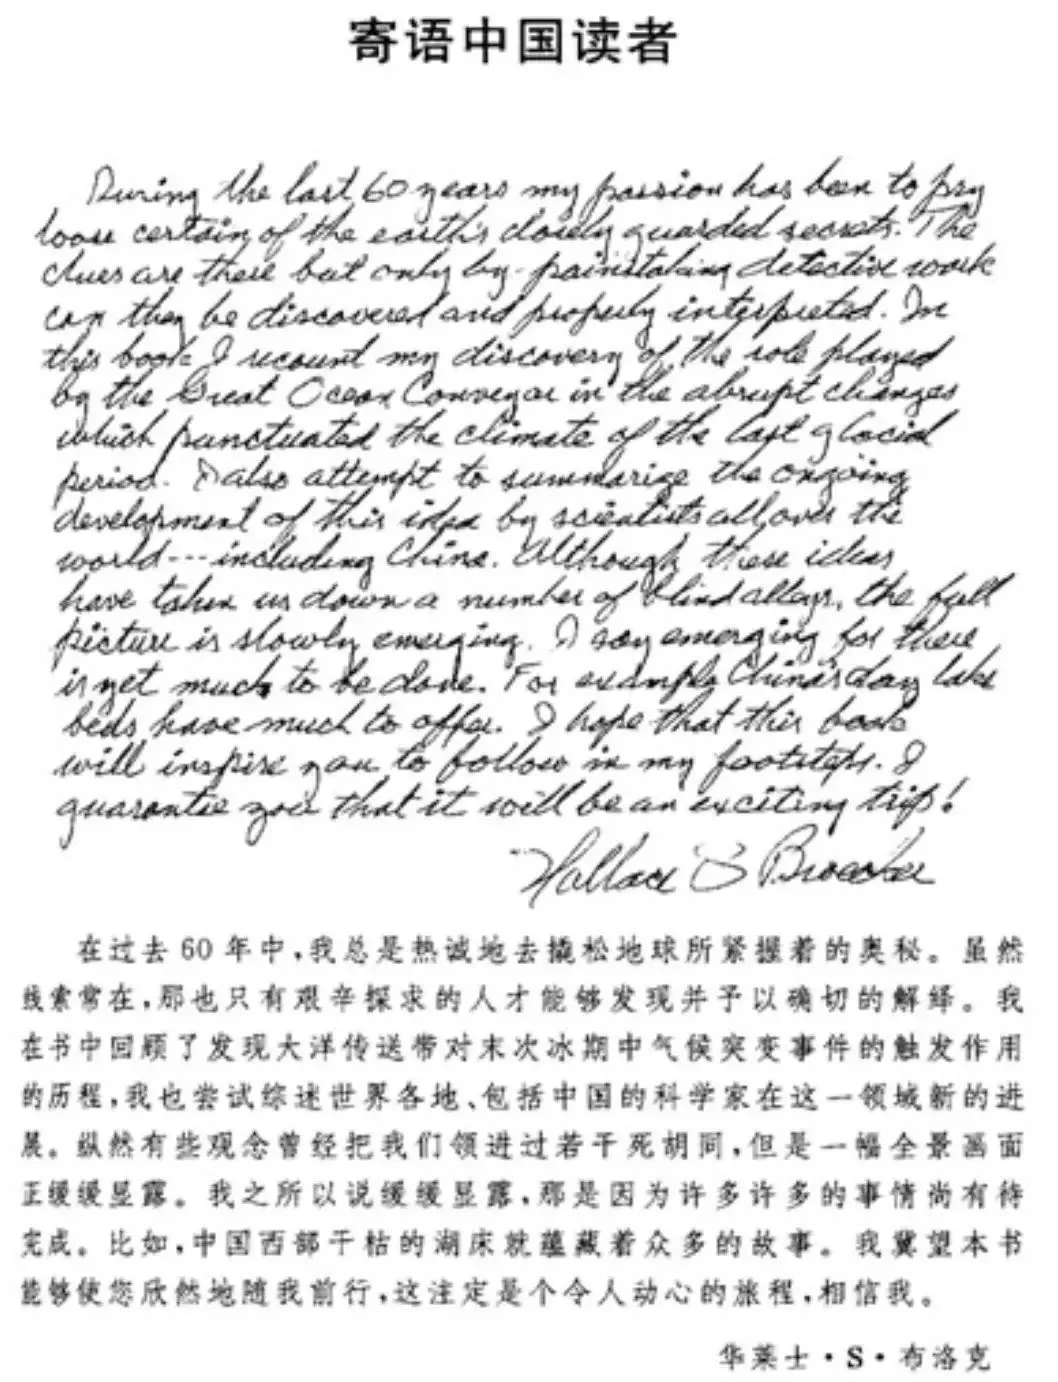 寄语中国读者
During the last 60 years my passion has been to pry
loose certain of the earth's closely guarded secrets. The
clues are there but only by painstaking detective work
can they be discovered and properly interpreted. In
this book I recount my discovery of the role played
by the Great Ocean Conveyor in the abrupt changes
which punctuated the climate of the last glacial
period. I also attempt to summarize the ongoing
development of this idea by scientists all over the
world---including China. Although these ideas
have taken us down a number of blind alleys, the full
picture is slowly emerging. I say emerging for there
is yet much to be done. For example China's dry lake
beds have much to offer. I hope that this book
will inspire you to follow in my footsteps. I
guarantee you that it will be an exciting trip!
Wallace S Broecker
在过去 60 年中,我总是热诚地去撬松地球所紧握着的奥秘。虽然
线索常在,那也只有艰辛探求的人才能够发现并予以确切的解绎。我
在书中回顾了发现大洋传送带对末次冰期中气候突变事件的触发作用
的历程,我也尝试综述世界各地、包括中国的科学家在这一领域新的进
展。纵然有些观念曾经把我们领进过若干死胡同,但是一幅全景画面
正缓缓显露。我之所以说缓缓显露,那是因为许多许多的事情尚有待
完成。比如,中国西部干枯的湖床就蕴藏着众多的故事。我冀望本书
能够使您欣然地随我前行,这注定是个令人动心的旅程,相信我。
华莱士·S·布洛克